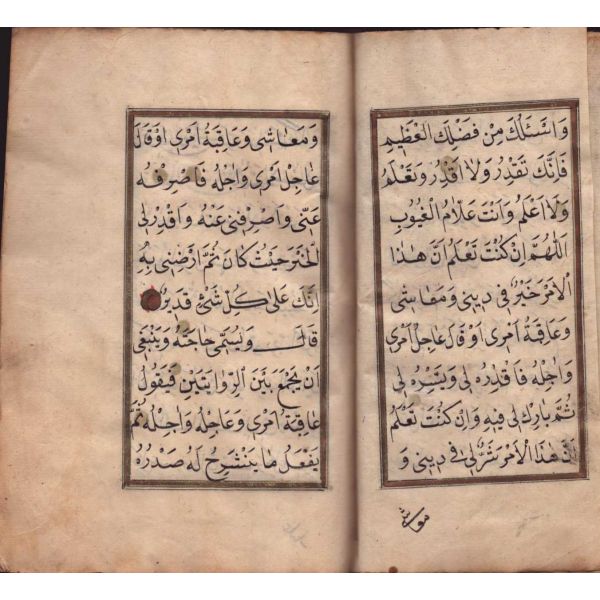 وَاَسْئَلُكَ مِنْ فَضْلِكَ الْعَظِيمِ
فَاِنَّكَ تَقْدِرُ وَلَا اَقْدِرُ وَتَعْلَمُ
وَلَا اَعْلَمُ وَاَنْتَ عَلَّامُ الْغُيُوبِ
اَللّٰهُمَّ اِنْ كُنْتَ تَعْلَمُ اَنَّ هٰذَا
الْاَمْرَ خَيْرٌ لِى فِى دِينِى وَمَعَاشِى
وَعَاقِبَةُ اَمْرِى اَوْ قَالَ عَاجِلِ اَمْرِى
وَاٰجِلِهِ فَاقْدِرْهُ لِى وَيَسِّرْهُ لِى
ثُمَّ بَارِكْ لِى فِيهِ وَاِنْ كُنْتَ تَعْلَمُ
اَنَّ هٰذَا الْاَمْرَ شَرٌّ لِى فِى دِينِى وَ
وَمَعَاشِى وَعَاقِبَةُ اَمْرِى اَوْ قَالَ
عَاجِلِ اَمْرِى وَاٰجِلِهِ فَاصْرِفْهُ
عَنِّى وَاصْرِفْنِى عَنْهُ وَاقْدِرْ لِى
الْخَيْرَ حَيْثُ كَانَ ثُمَّ ارْضِنِى بِهِ
اِنَّكَ عَلٰى كُلِّ شَىْءٍ قَدِيرٌ
قَالَ وَلْيُسَمِّى حَاجَتَهُ وَيَنْبَغِى
اَنْ يَجْمَعَ بَيْنَ الرِّوَايَتَيْنِ فَيَقُولُ
عَاقِبَةُ اَمْرِى وَعَاجِلِهُ وَاٰجِلِهُ ثُمَّ
يَفْعَلُ مَا يَنْشَرِحُ لَهُ صَدْرُهُ